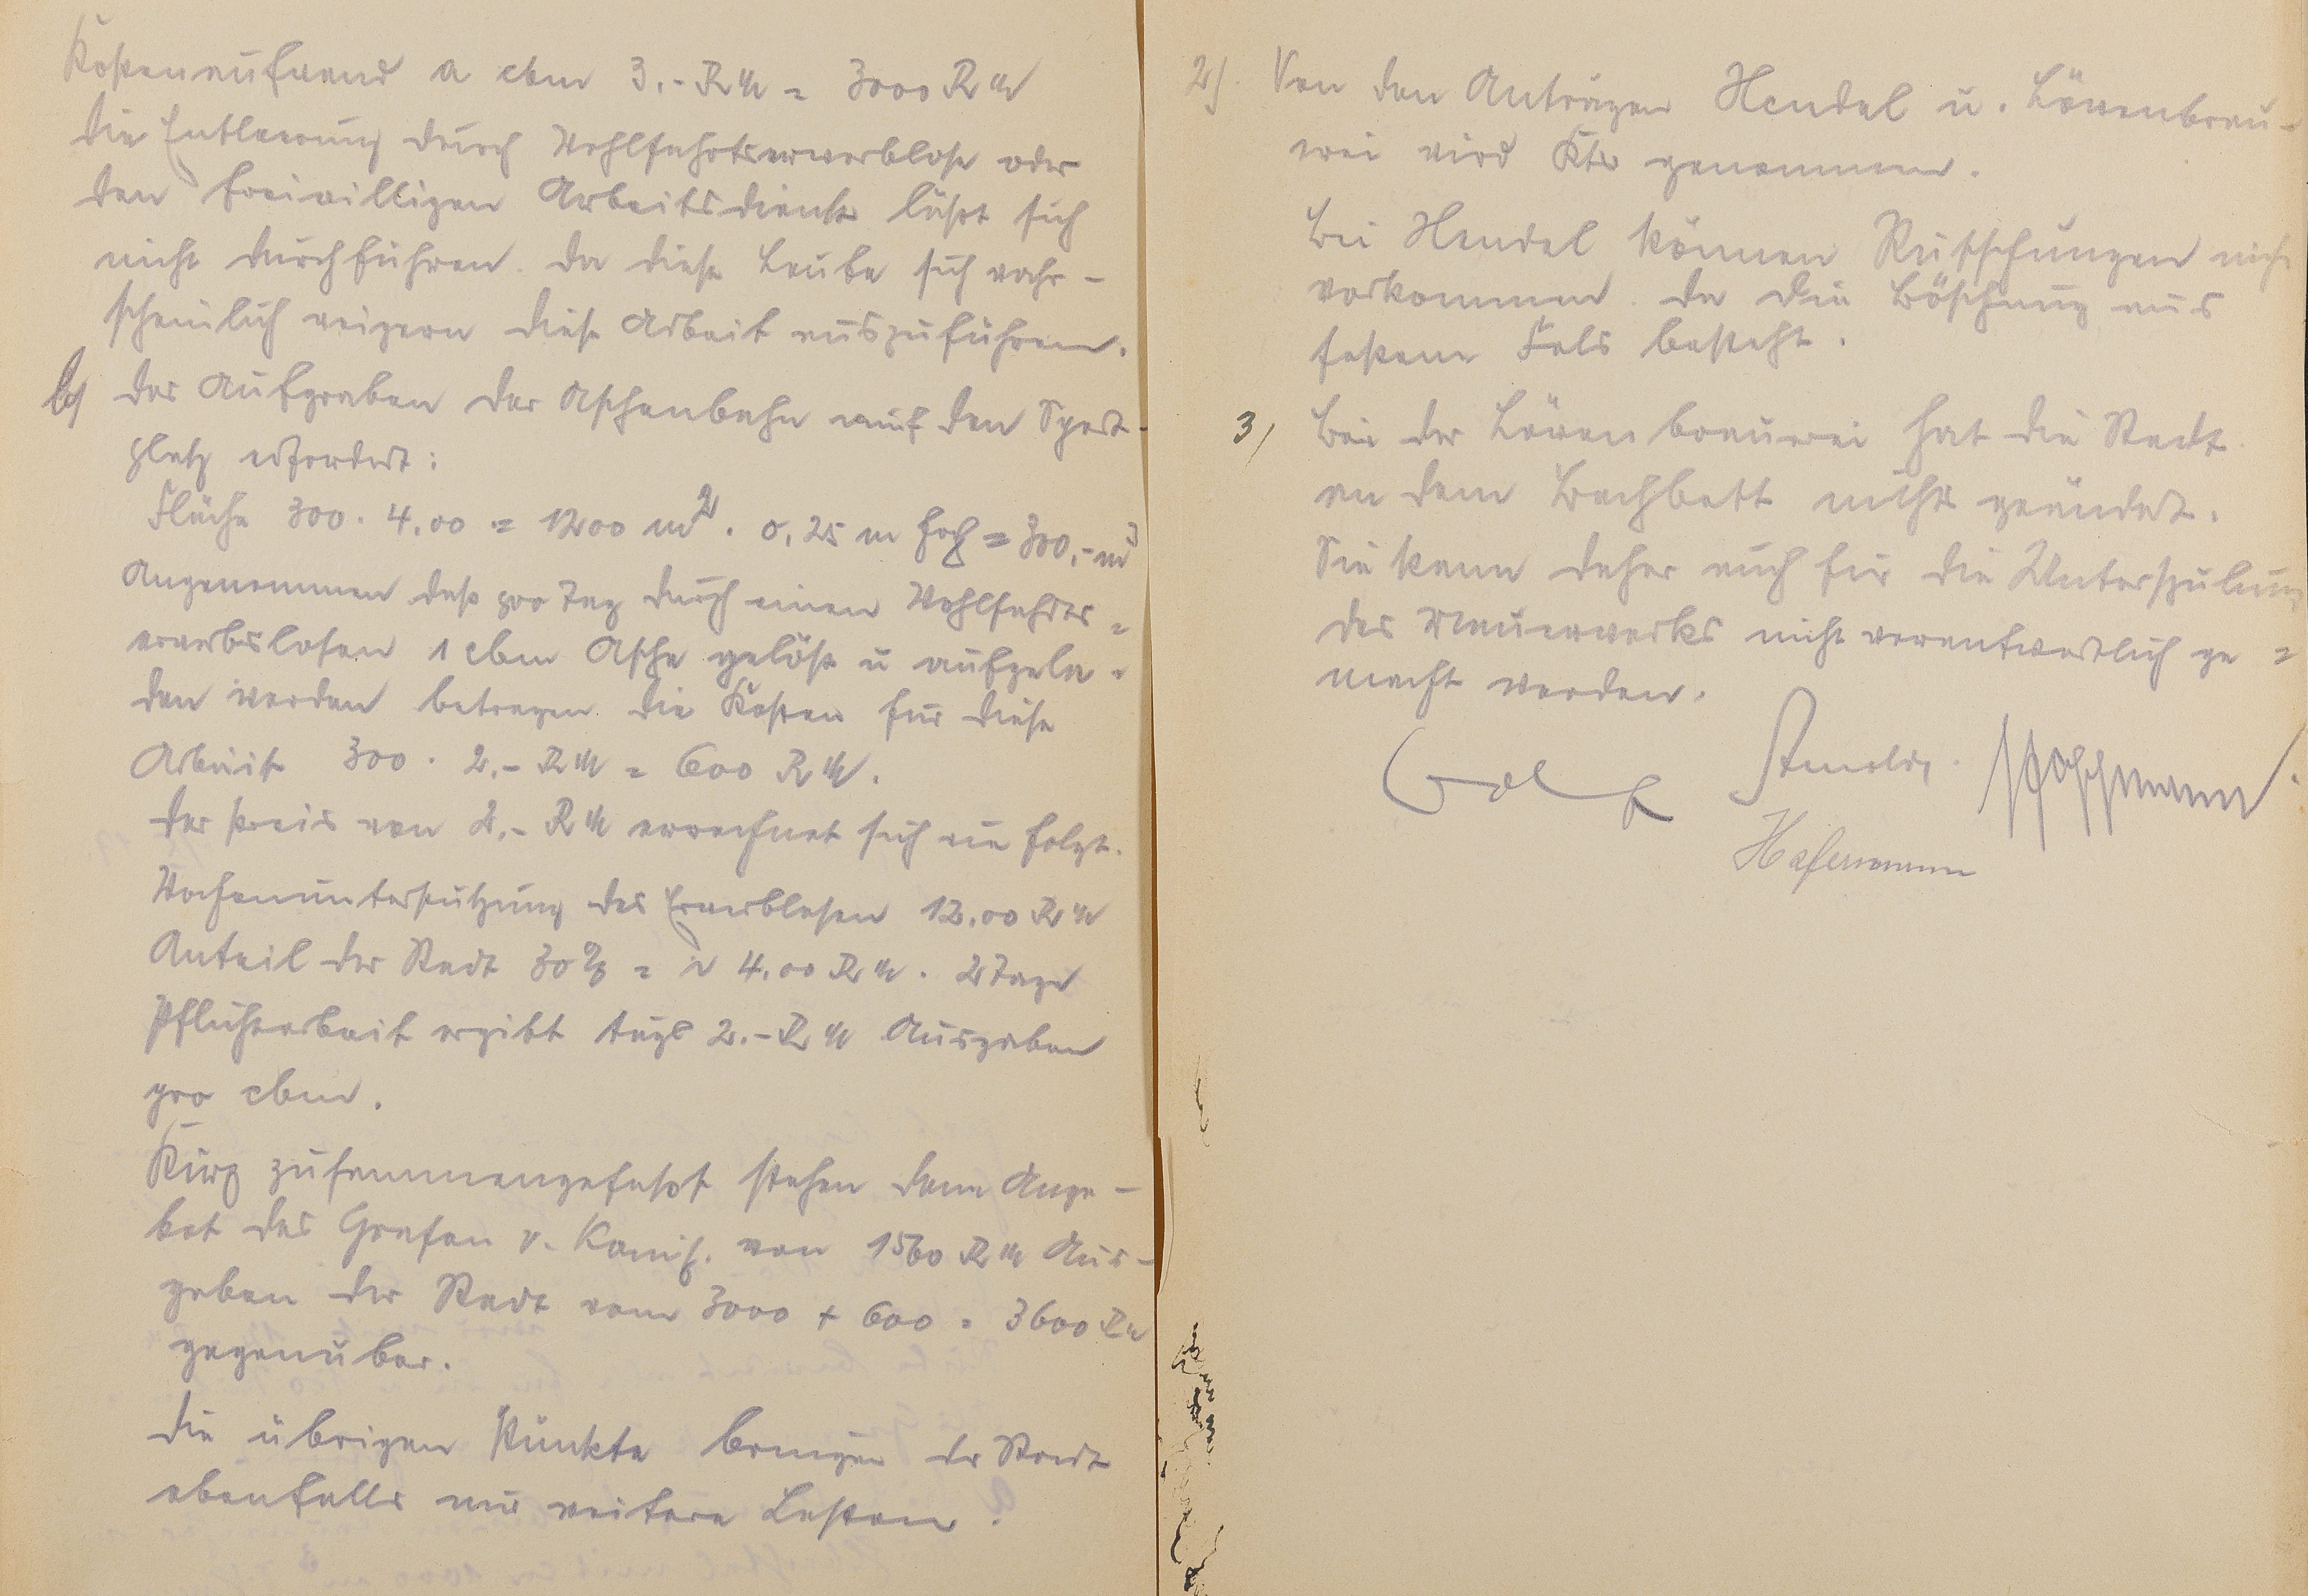 Kostenaufwand a cbm 3.- RM = 3000 RM
Die Entleerung durch Wohlfahrtserwerblose oder
den freiwilligen Arbeitsdienst läßt sich
nicht durchführen. Da diese Leute sich wahr-
scheinlich weigern diese Arbeit auszuführen.
b) Das Aufgraben der Aschenbahn auf den Sport-
platz erfordert:
Fläche 300 · 4.00 = 1200 m² · 0,25 m hoch = 300,- m³
Angenommen daß pro Tag durch einen Wohlfahrts=
erwerbslosen 1 cbm Asche gelöst u aufgela=
den werden betragen die Kosten für diese
Arbeit 300 · 2.- RM = 600 RM.
Der Preis von 2.- RM errechnet sich wie folgt.
Wochenunterstützung des Erwerblosen 12.00 RM
Anteil der Stadt 30% = 4.00 RM. 2 Tage
Pflichtarbeit ergibt tägl 2.- RM Ausgaben
pro cbm.
Kurz zusammengefaßt stehen dem Ange-
bot des Grafen v. 1560 RM Aus-
gaben der Stadt von 3000 + 600 = 3600 RM
gegenüber.
Die übrigen Punkte bringen der Stadt
ebenfalls nur weitere Lasten.
2). Von den Anträgen Hendel u. Löwenbrau-
erei wird Ktn genommen.
Bei Hendel können Rutschungen nicht
vorkommen. Da die Böschung aus
festem Fels besteht.
3) Bei der Löwenbrauerei hat die Stadt
an dem Bachbett nichts geändert.
Sie kann daher auch für die Unterspülung
des Mauerwerks nicht verantwortlich ge=
macht werden.
Hoffmann.
Hafenmann